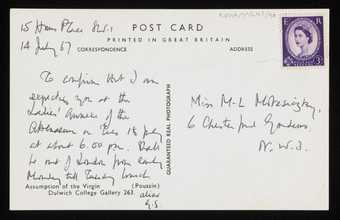 15 Hans Place S.W.1
14 July 67
POST CARD
PRINTED IN GREAT BRITAIN
CORRESPONDENCE
ADDRESS
To confirm that I am
expecting you at the
Ladies' Annexe of the
Athenaeum on Tues 18 July
at about 6.00 pm. Shall
be out of London from early
Monday till Tuesday lunch
Assumption of the Virgin (Poussin)
Dulwich College Gallery 263.
alias
G.S.
GUARANTEED REAL PHOTOGRAPH
Miss M-L
6 Chesterford Gardens,
N.W.3.
E R
3D